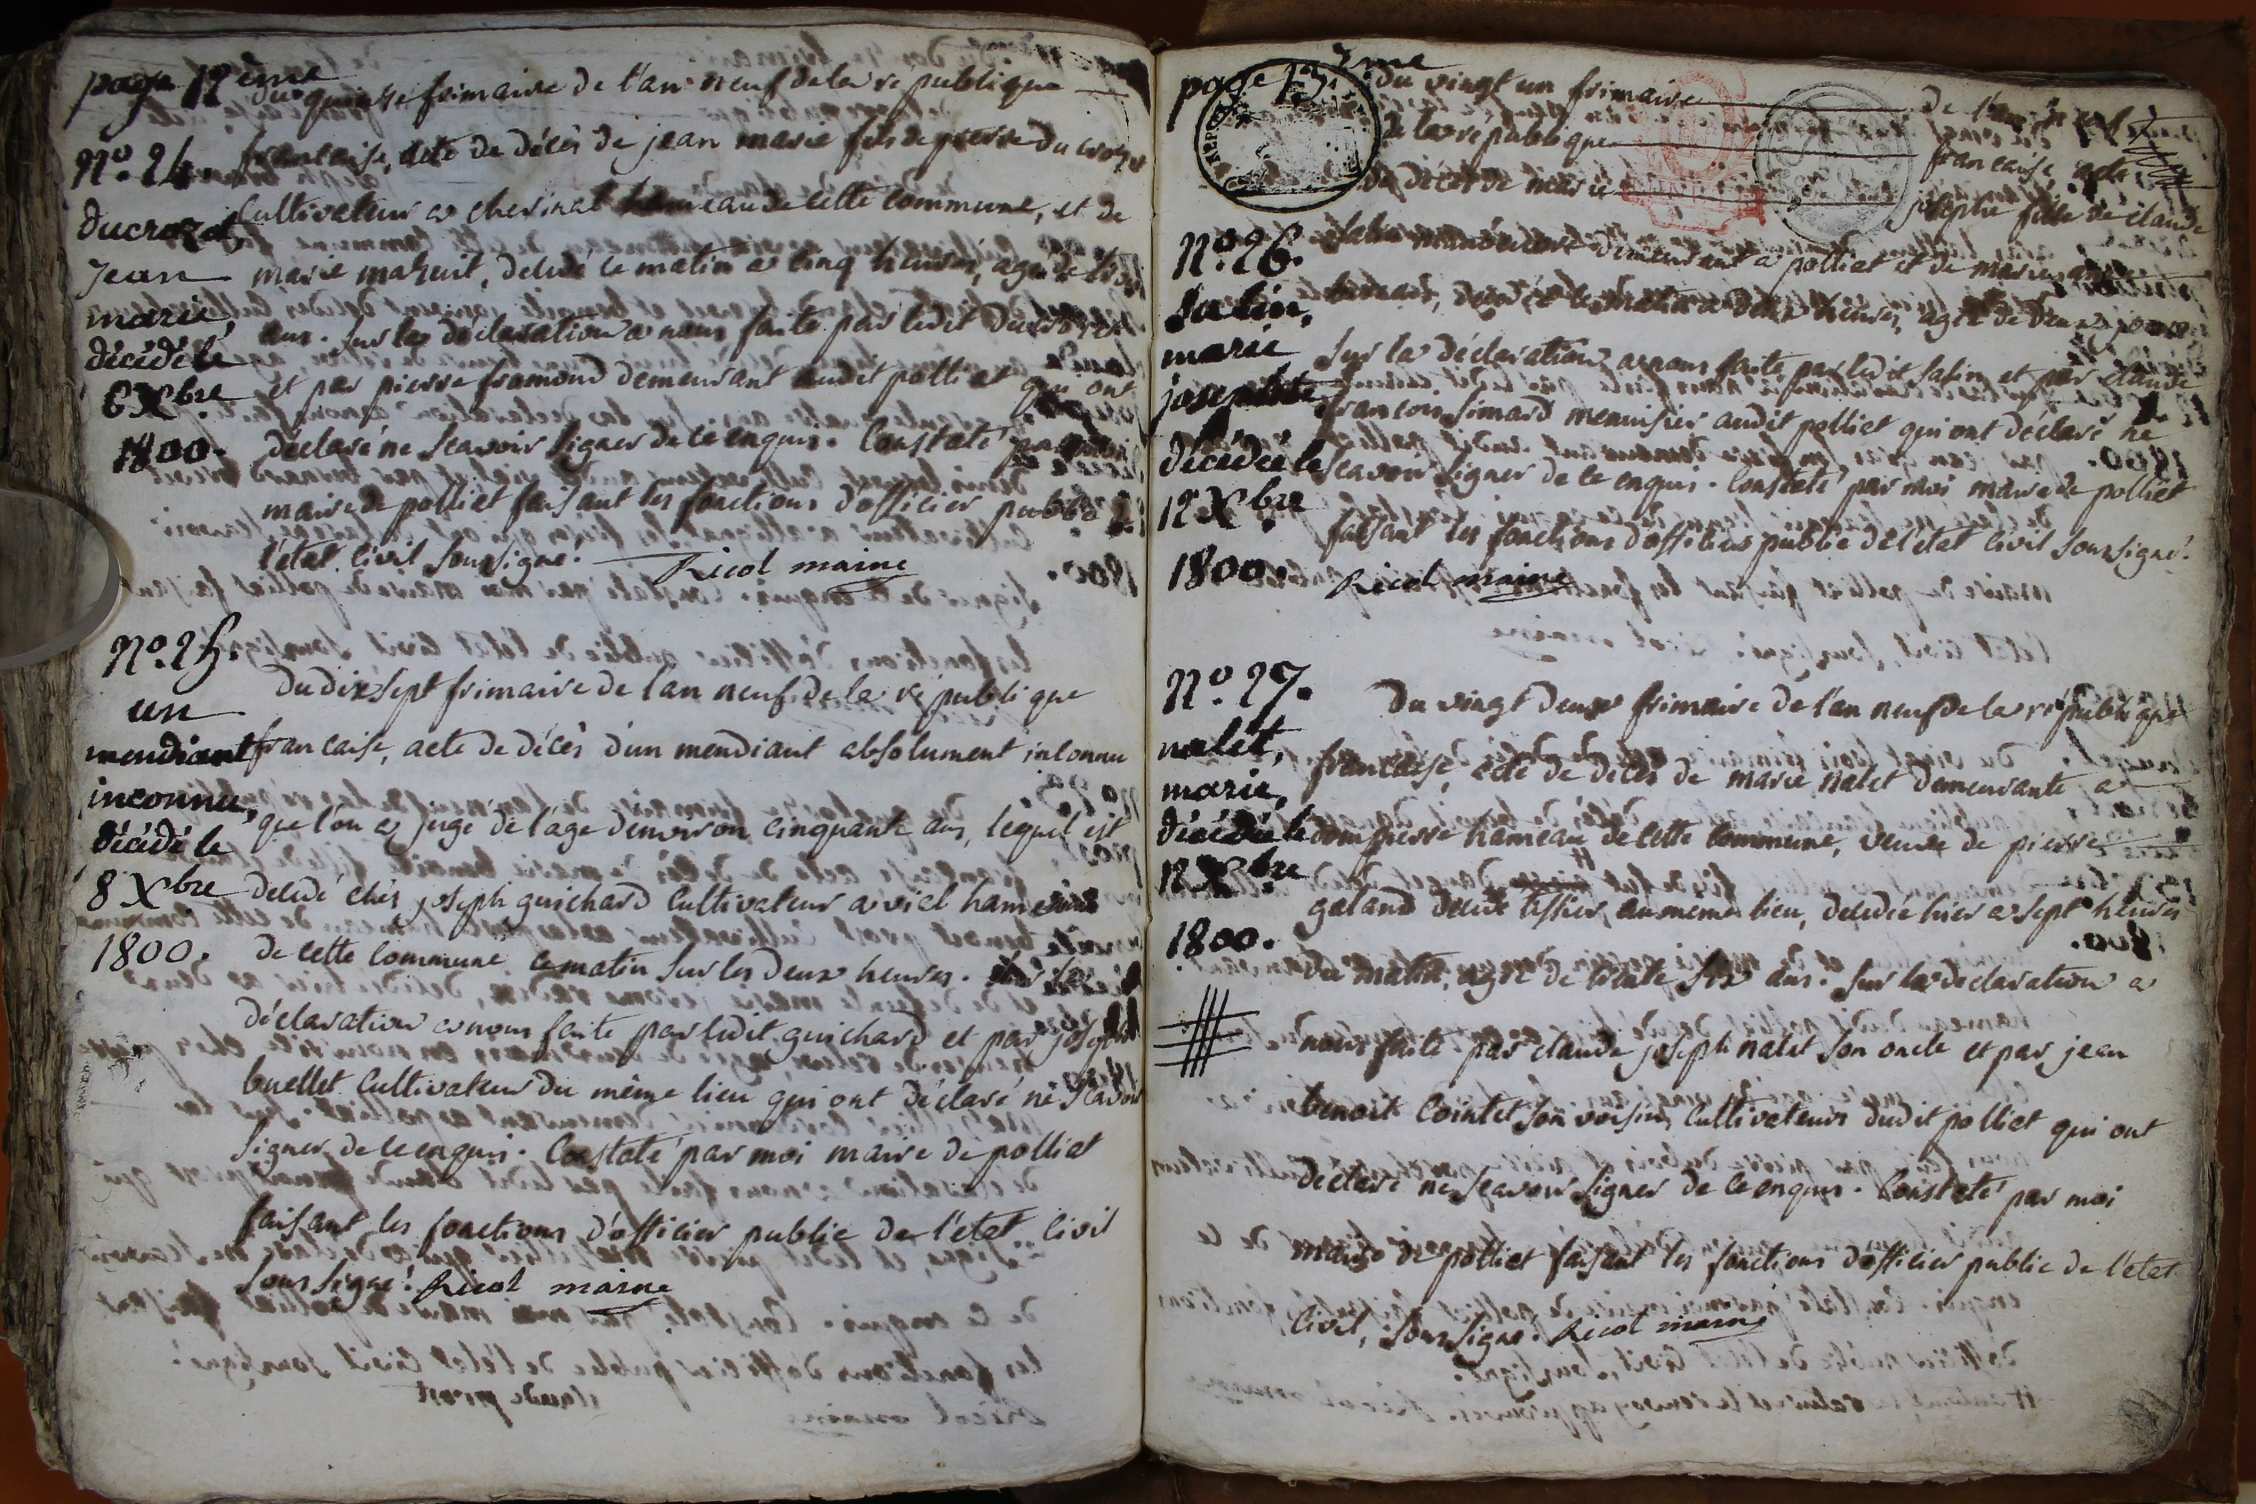 page 12ème
du quinze frimaire de l'an neuf de la republique
N.º 24. francaise, acte de décès de jean marie fils de pierre du crozet
ducrozet cultivateur a cherinal hameau de cette commune, et de
Jean marie mahuit, decedé ce matin a cinq heures, agé de trois
marie, ans. Sur la déclaration a nous faite par ledit ducrozet
décédé le et par pierre framond demeurant audit polliat qui ont
6 Xbre déclaré ne scavoir signer de ce enquis. Constaté par moi
1800. maire de polliat faisant les fonctions d'officier public de
l'état civil soussigné. Ricol maire
N.º 25. du dix sept frimaire de l'an neuf de la republique
un
mendiant francaise, acte de décès d'un mendiant absolument inconnu
inconnu, que l'on a jugé de l'age d'environ cinquante ans, lequel est
décédé le
8 Xbre decedé chés joseph guichard cultivateur a viel hameau
1800. de cette commune ce matin sur les deux heures. Sur la
déclaration a nous faite par ledit guichard et par joseph
buellet cultivateur du même lieu qui ont déclaré ne scavoir
signer de ce enquis. Constaté par moi maire de polliat
faisant les fonctions d'officier public de l'état civil
soussigné. Ricol maire
page 13.ème du vingt un frimaire de l'an neuf
de la republique francaise, acte
de décès de marie josephte fille de claude
N.º 26. demeurant a polliat et de marie
Salin, decedée ce matin a deux heures, agée de deux jours
marie Sur la déclaration a nous faite par ledit Salin et par claude
josephte francois simard menuisier audit polliat qui ont déclaré ne
décédée le scavoir signer de ce enquis. Constaté par moi maire de polliat
12 Xbre faisant les fonctions d'officier public de l'état civil soussigné.
1800. Ricol maire
N.º 27. Du vingt deux frimaire de l'an neuf de la republique
nalet, francaise, acte de décès de marie nalet demeurante a
marie,
décédée le hameau de cette commune, veuve de pierre
12 Xbre galand tissier au meme lieu, decedée hier a sept heures
1800. du matin, agée de trente six ans. Sur la declaration a
nous faite par claude joseph nalet son oncle et par jean
benoit cointet son voisin, cultivateurs dudit polliat qui ont
déclaré ne scavoir signer de ce enquis. Constaté par moi
maire de polliat faisant les fonctions d'officier public de l'état
civil, soussigné. Ricol maire